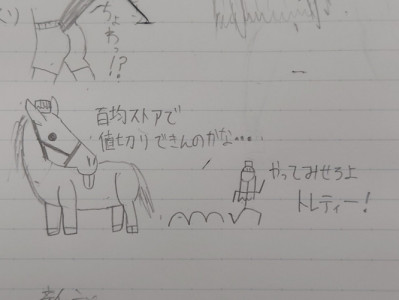 ちょ
わっ!?
百均ストアで
値切りできんのかな…
やってみせろよ
トレティー!